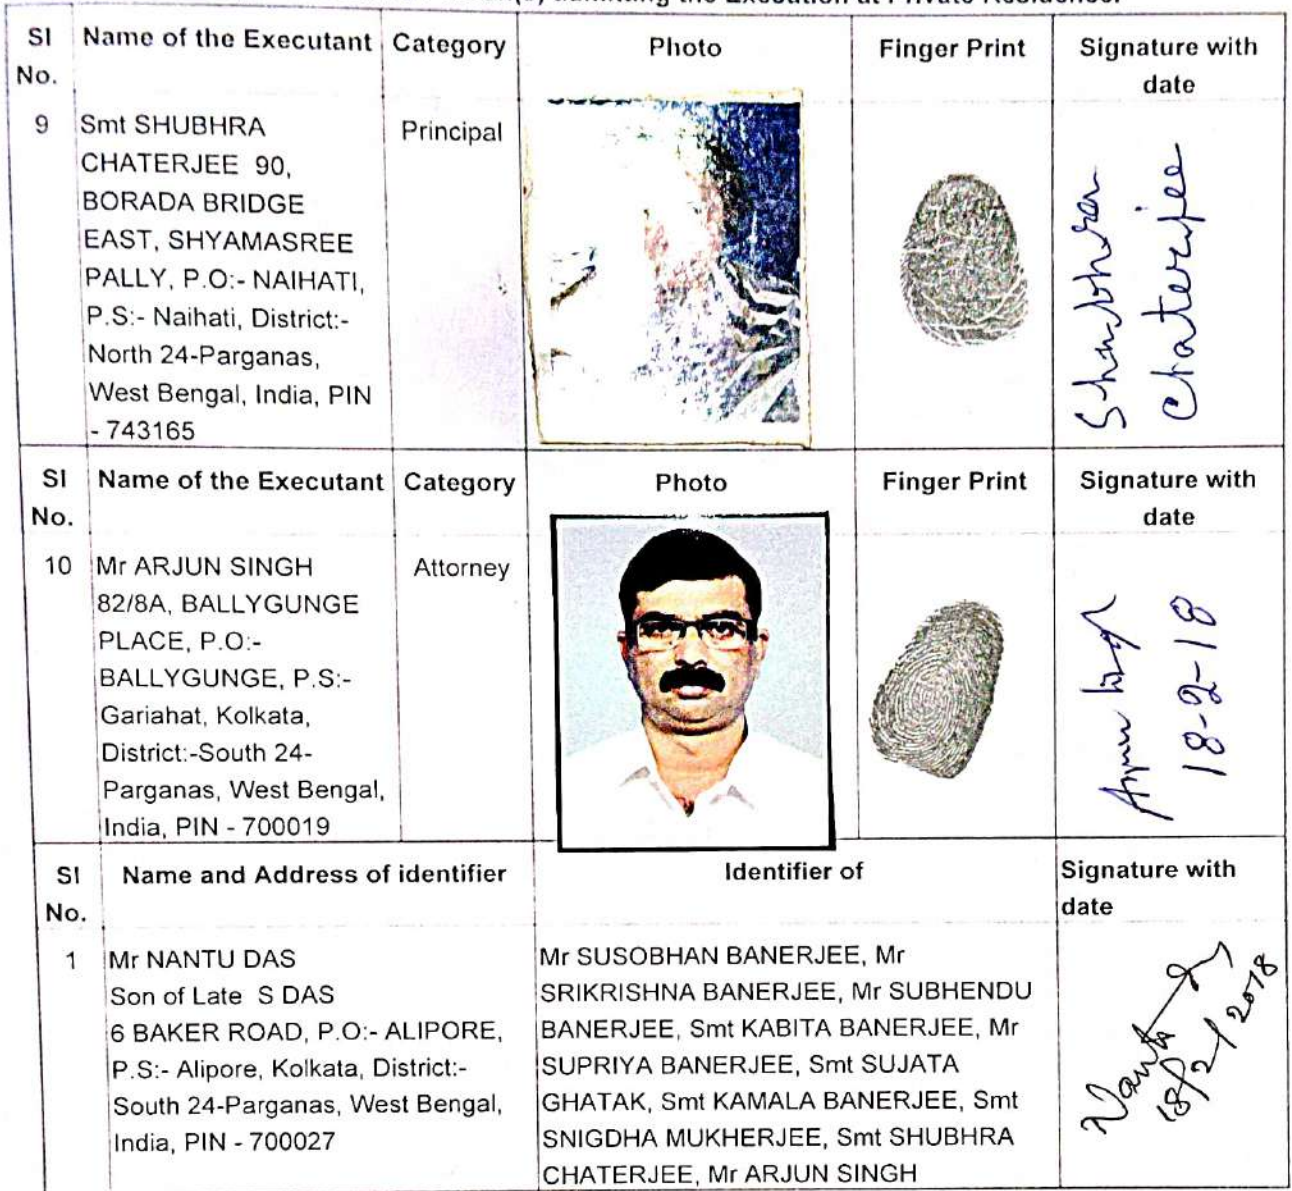 admitting the Execution at Private Residence.
Sl No. Name of the Executant Category Photo Finger Print Signature with date
9 Smt SHUBHRA Principal
CHATERJEE 90,
BORADA BRIDGE
EAST, SHYAMASREE
PALLY, P.O:- NAIHATI,
P.S:- Naihati, District:-
North 24-Parganas,
West Bengal, India, PIN
- 743165
Shubhra
Chaterjee
Sl No. Name of the Executant Category Photo Finger Print Signature with date
10 Mr ARJUN SINGH Attorney
82/8A, BALLYGUNGE
PLACE, P.O:-
BALLYGUNGE, P.S:-
Gariahat, Kolkata,
District:-South 24-
Parganas, West Bengal,
India, PIN - 700019
18-2-18
Sl No. Name and Address of identifier Identifier of Signature with date
1 Mr NANTU DAS
Son of Late S DAS
6 BAKER ROAD, P.O:- ALIPORE,
P.S:- Alipore, Kolkata, District:-
South 24-Parganas, West Bengal,
India, PIN - 700027
Mr SUSOBHAN BANERJEE, Mr
SRIKRISHNA BANERJEE, Mr SUBHENDU
BANERJEE, Smt KABITA BANERJEE, Mr
SUPRIYA BANERJEE, Smt SUJATA
GHATAK, Smt KAMALA BANERJEE, Smt
SNIGDHA MUKHERJEE, Smt SHUBHRA
CHATERJEE, Mr ARJUN SINGH
18/2/2018